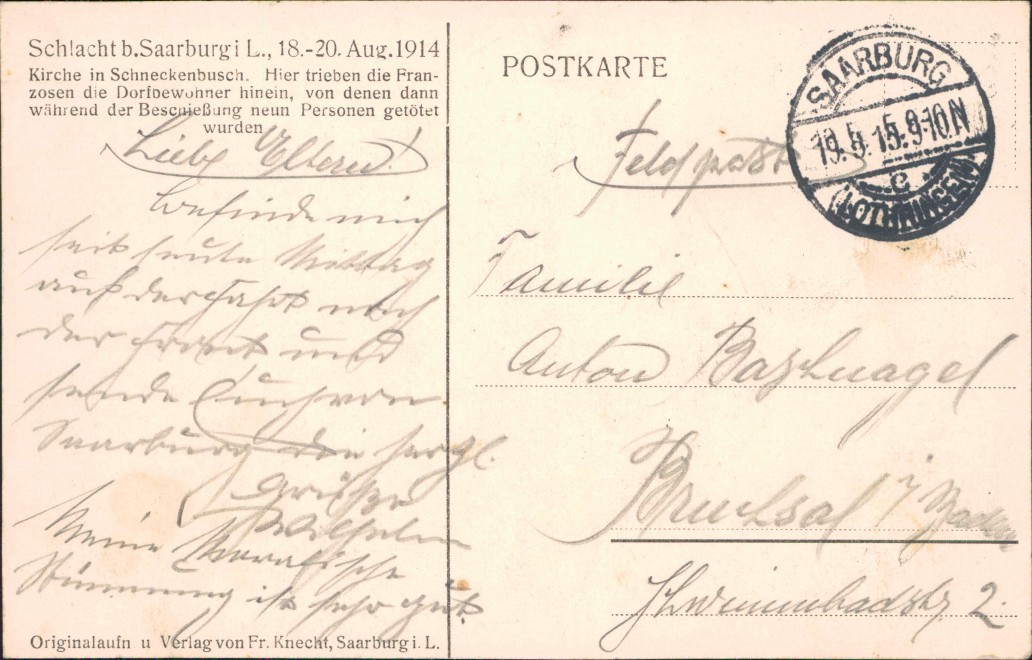 Schlacht b. Saarburg i L., 18.-20. Aug. 1914
Kirche in Schneckenbusch. Hier trieben die Fran-
zosen die Dorfbewohner hinein, von denen dann
während der Beschießung neun Personen getötet
wurden
Liebe Eltern!
Befinde mich
seit heute Mittag
auf der Fahrt nach
der Front und
sende Euch von
Saarburg die herzl.
Grüße
Wilhelm
Meine Moralische
Stimmung ist sehr gut.
Originalaufn u Verlag von Fr. Knecht, Saarburg i. L.
POSTKARTE
SAARBURG
19.5.15.9-10N
c
(LOTHRINGEN)
Feldpost
Familie
Anton
Bruchsal i/ Baden
Schwimmbadstr 2.